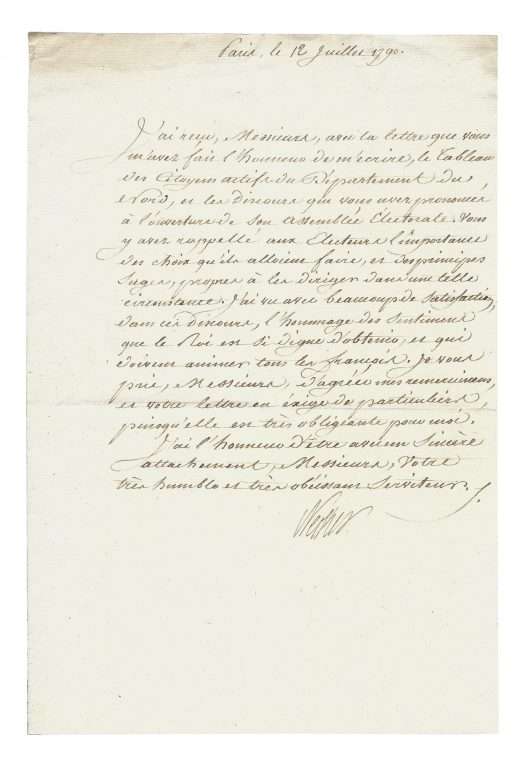 Paris, le 12 Juillet 1790.
J'ai reçu, Messieurs, avec la lettre que vous
m'avez fait l'honneur de m'écrire, le Tableau
des Citoyens actifs du Département du
Nord, et les discours que vous avez prononcés
à l'ouverture de son Assemblée Electorale. Vous
y avez rappellé aux Electeurs l'importance
des choix qu'ils alloient faire, et des principes
Sages, propres à les diriger dans une telle
circonstance. J'ai vu avec beaucoup de Satisfaction,
dans ces discours, l'hommage des Sentimens
que le Roi est si digne d'obtenir, et qui
doivent animer tous les françois. Je vous
prie, Messieurs, d'agréer mes remercimens,
et votre lettre en éxige de particuliers,
puisqu'elle est très obligeante pour moi.
J'ai l'honneur d'être avec un Sincère
attachement, Messieurs, Votre
très humble et très obéissant Serviteur.
Necker